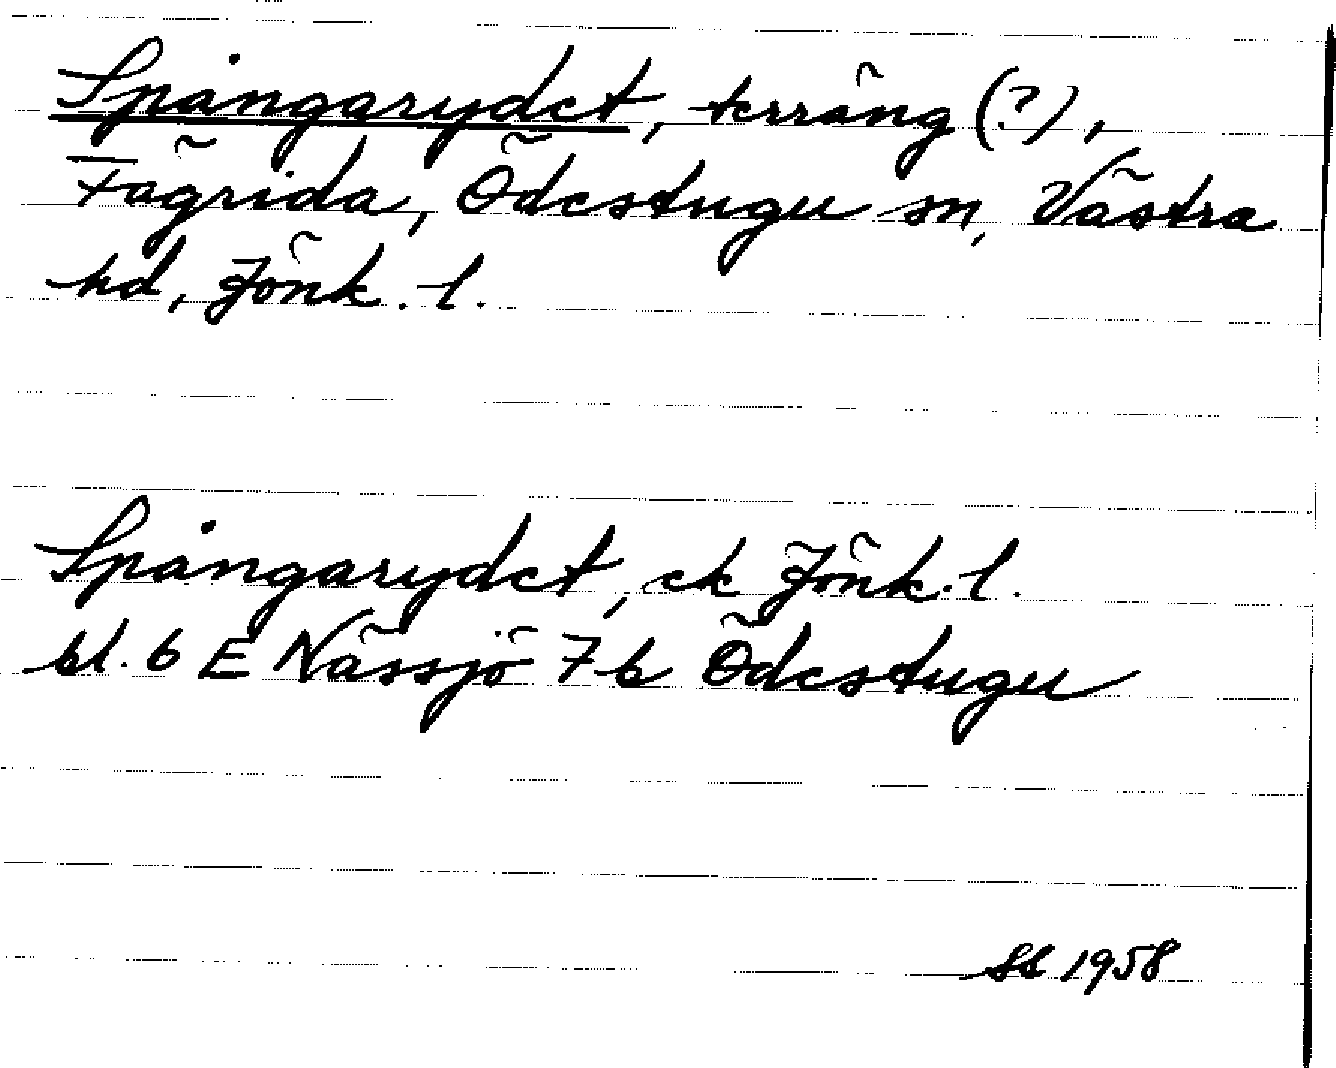 Spångarydet, terräng (?),
Fägrida, Ödestugu sn, Västra
hd, Jönk. l.
Spångarydet, ek Jönk. l.
bl. 6 E Nässjö 7 b Ödestugu
SL 1958